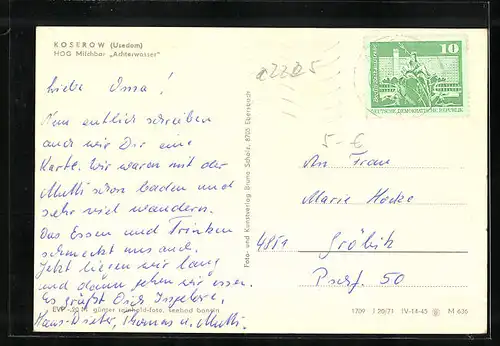 KOSEROW (Usedom)
HOG Milchbar „Achterwasser"
Liebe Oma!
Nun entlich schreiben
auch wir Dir eine
Karte. Wir waren mit der
Mutti schon baden und
sehr viel wandern.
Das Essen und Trinken
schmeckt uns auch.
Jetzt liegen wir lang
und dann gehen wir essen.
Es grüßt Dich
Hans-Dieter, Thomas u. Mutti.
EVP -,20 M günter reinhold-foto, seebad bansin
Foto- und Kunstverlag Bruno Scholz, 8705 Ebersbach
10
DEUTSCHE DEMOKRATISCHE REPUBLIK
5-€
An Frau
Marie
4851 Gröbitz
Pschf. 50
1709 J 20/71 IV-14-45 M 636